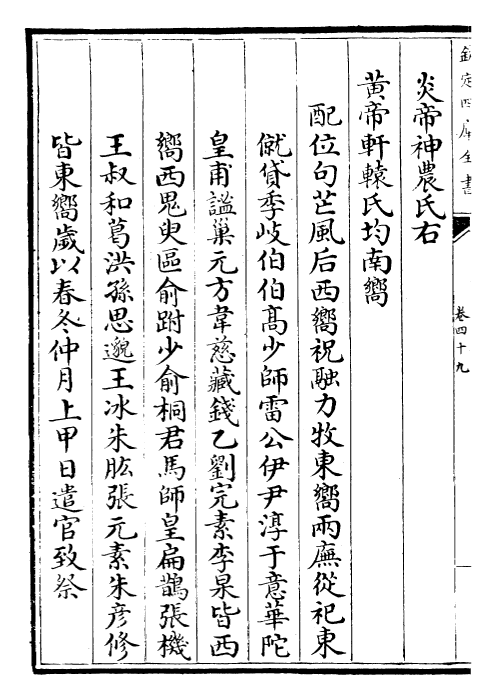 欽定四庫全書
卷四十九
炎帝神農氏右
黃帝軒轅氏均南嚮
配位句芒風后西嚮祝融力牧東嚮兩廡從祀東
僦貸季岐伯伯高少師雷公伊尹淳于意華陀
皇甫謐巢元方韋慈藏錢乙劉完素李杲皆西
嚮西鬼臾區俞跗少俞桐君馬師皇扁鵲張機
王叔和葛洪孫思邈王冰朱肱張元素朱彥修
皆東嚮歲以春冬仲月上甲日遣官致祭